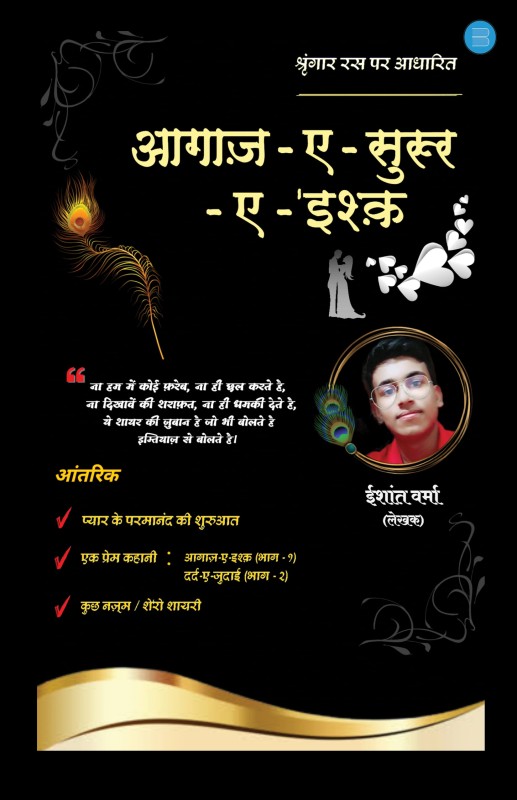 श्रृंगार रस पर आधारित
आगाज़ - ए - सुरूर
- ए - 'इश्क़
“ ना हम में कोई फ़रेब, ना ही छल करते है,
ना दिखावें की शराफ़त, ना ही धमकी देते है,
ये शायर की ज़ुबान है जो भी बोलते है
इम्तियाज़ से बोलते है।
ईशांत वर्मा
(लेखक)
आंतरिक
प्यार के परमानंद की शुरुआत
एक प्रेम कहानी : आगाज़-ए-इश्क़ (भाग - १)
दर्द-ए-जुदाई (भाग - २)
कुछ नज़्म / शेरो शायरी